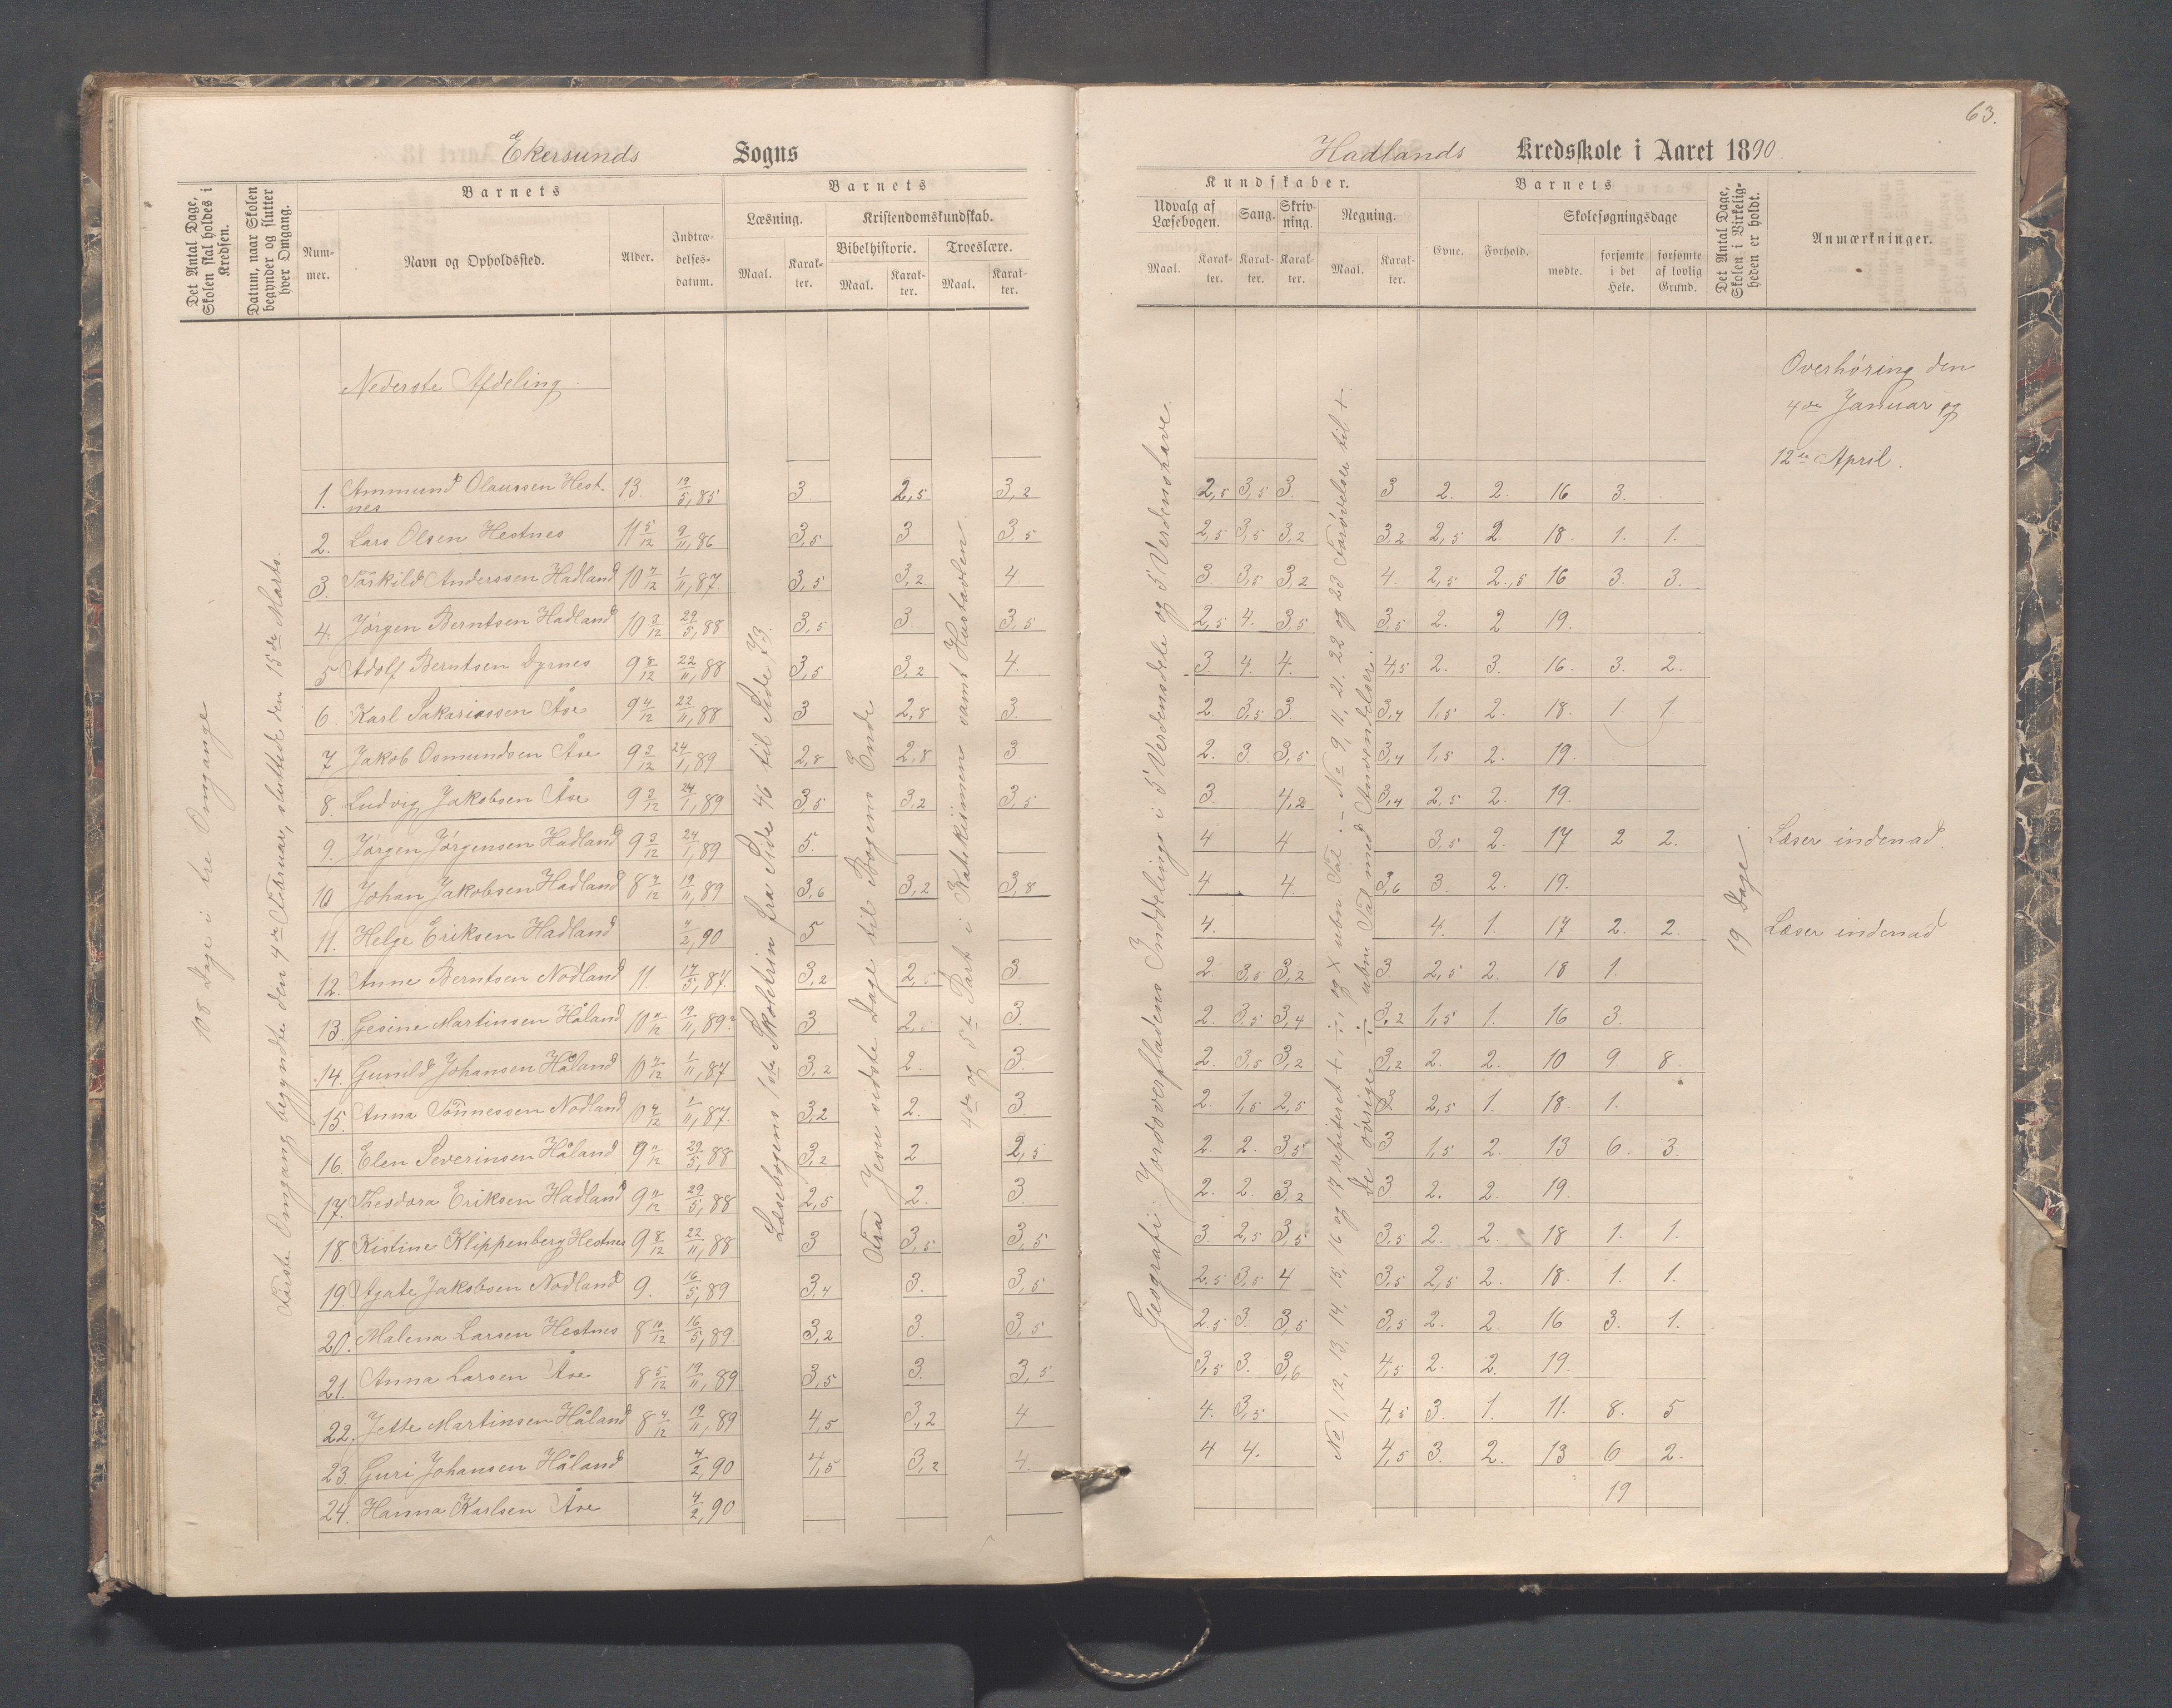 63.
Ekersunds Sogns
Hadlands Kredsskole i Aaret 1890.
Det Antal Dage, Skolen skal holdes i Kredsen.
Datum, naar Skolen begynder og slutter hver Omgang.
Barnets
Nummer.
Navn og Opholdssted.
Alder.
Indtrædelsesdatum.
Barnets
Læsning.
Maal.
Karakter.
Kristendomskundskab.
Bibelhistorie.
Maal.
Karakter.
Troeslære.
Maal.
Karakter.
Kundskaber.
Udvalg af Læsebogen.
Maal.
Karakter.
Sang.
Karakter.
Skrivning.
Karakter.
Regning.
Maal.
Karakter.
Barnets
Evne.
Forhold.
Skolesøgningsdage
mødte.
forsømte i det Hele.
forsømte af lovlig Grund.
Det Antal Dage, Skolen i Virkeligheden er holdt.
Anmærkninger.
108 Dage i tre Omgange
Første Omgang begyndte den 4de Februar, sluttede den 15de Marts.
Læsebogens 1ste Skoletrin fra Side 46 til Side 73.
Fra Jesu sidste Dage til Bogens Ende
4de og 5te Part i Katekismen samt Hustavlen.
Geografi: Jordoverfladens Inddeling i 5 Verdensdele og 5 Verdenshave.
No 1, 12, 13, 14, 15, 16 og 17 repeteret +, ÷, og × ubn. Tal. – No 9, 11, 21, 22 og 23 Forøvelser til +.
De øvrige ÷ ubn. Tal med Anvendelser.
19 Dage.
Nederste Afdeling.
Overhøring den
4de Januar og
12te April.
1. Ammund Olaussen Hestnes 13. 19/5, 85 3. 2,5 3,2 2,5 3,5 3. 3 2. 2. 16 3.
2. Lars Olsen Hestnes 11 5/12 9/11, 86 3,5 3 3,5 2,5 3,5 3,2 3,2 2,5 2. 18. 1. 1.
3. Tärkild Anderssen Hadland 10 7/12 1/11, 87. 3,5 3,2 4 3. 3,5 3,2 4. 2,5 2,5 16 3. 3.
4. Jörgen Berntsen Hadland 10 3/12 29/5, 88 3,5 3. 3,5 2,5 4. 3,5 3,5 2. 2 19.
5 Adolf Berntsen Dyrnes 9 8/12 22/11, 88 3,5 3,2 4. 3. 4. 4. 4,5 2. 3. 16. 3. 2.
6. Karl Sakariassen Åse 9 4/12 22/11, 88 3 2,8 3. 2. 3,5 3. 3,4 1,5 2. 18. 1. 1
7 Jakob Osmundsen Åse 9 3/12 24/1, 89 2,8 2,8 3 2. 3 3,5 3,4 1,5 2. 19.
8. Ludvig Jakobsen Åse 9 2/12 24/1, 89 3,5 3,2 3,5 3. 4,2 3,4 2,5 2. 19.
9. Jörgen Jörgensen Hadland 9 3/12 24/1, 89 5. 4 4 3,5 2. 17 2 2. Læser indenad.
10 Johan Jakobsen Hadland 8 4/12 19/11, 89 3,6 3,2 3,8 4 4. 3,6 3. 2. 19.
11. Helge Eriksen Hadland 4/2, 90 5 4. 4. 1. 17 2. 2. Læser indenad
12. Anne Berntsen Nodland 11. 17/5, 87. 3,2 2. 3. 2. 3,5 3,2 3. 2,5 2. 18 1.
13. Gesine Martinsen Håland 10 4/12 19/11, 89. 3. 2. 3. 2. 3,5 3,4 3,2 1,5 1. 16 3.
14. Gunild Johansen Håland 10 7/12 1/11, 87 3,2 2. 3. 2. 3,5 3,2 3,2 2. 2. 10 9. 8.
15. Anna Tönnessen Nodland 10 4/12 1/11, 87. 3,2 2. 3. 2. 1,5 2,5 2,5 1. 18. 1.
16. Elen Severinsen Håland 9 11/12 29/5, 88 3,2 2. 2,5 2. 2. 3,5 3 1,5 2. 13 6. 3.
17. Theodora Eriksen Hadland 9 11/12 29/5, 88 2,5 2. 3. 2. 2. 3,2 3. 2. 2. 19.
18. Kistine Klippenberg Hestnes 9 8/12 22/11, 88 3 3,5 3,5 3. 2,5 3,5 3,5 2. 2. 18 1. 1.
19. Agate Jakobsen Nodland 9. 16/5, 89 3,4 3. 3,5 2,5 3,5 4 3,5 2,5 2. 18. 1. 1.
20. Malena Larsen Hestnes 8 10/12 16/5, 89 3,2 3. 3,5 2,5 3. 3,5 3,5 2. 2. 16 3. 1.
21. Anna Larsen Åse 8 5/12 19/11, 89 3,5 3. 3,5 3,5 3. 3,6 4,5 2. 2. 19.
22. Jette Martinsen Håland 8 4/12 19/11, 89 4,5 3,2 4 4. 3,5 4,5 3. 1. 11. 8. 5
23. Guri Johansen Håland 4/2, 90 4,5 3,2 4. 4 4. 4,5 3. 2. 13 6 2.
24. Hanna Karlsen Åse 4/2, 90 19